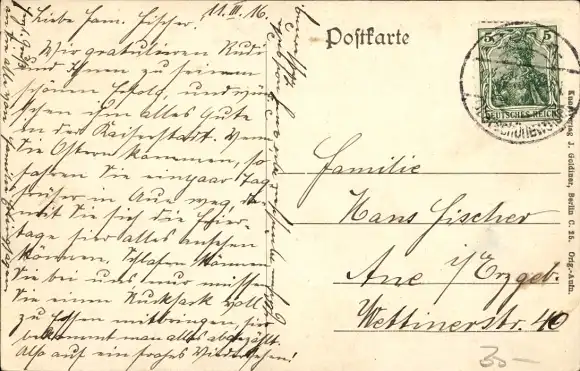 Liebe Fam. Fischer. 11.III.16
Wir gratulieren Rudi
und Ihnen zu seinem
schönen Erfolg, und wün
schen ihm alles Gute
in der Kaiserstadt. Wenn
Sie Ostern kommen, so
fahren Sie ein paar Tage
früher in Aue weg, da
mit Sie sich die Feier-
tage hier alles ansehen
können. Schlafen können
Sie bei uns, nur müssen
Sie einen Rucksack voll
zu Essen mitbringen, hier
bekommt man alles abgezählt.
Also auf ein frohes Wiedersehen!
Postkarte
5 5
DEUTSCHES REICH
Familie
Hans Fischer
Aue i/Erzgeb.
Wettinerstr. 40
Kunstverlag J. Goldiner, Berlin C. 25. Orig.-Aufn.
30-